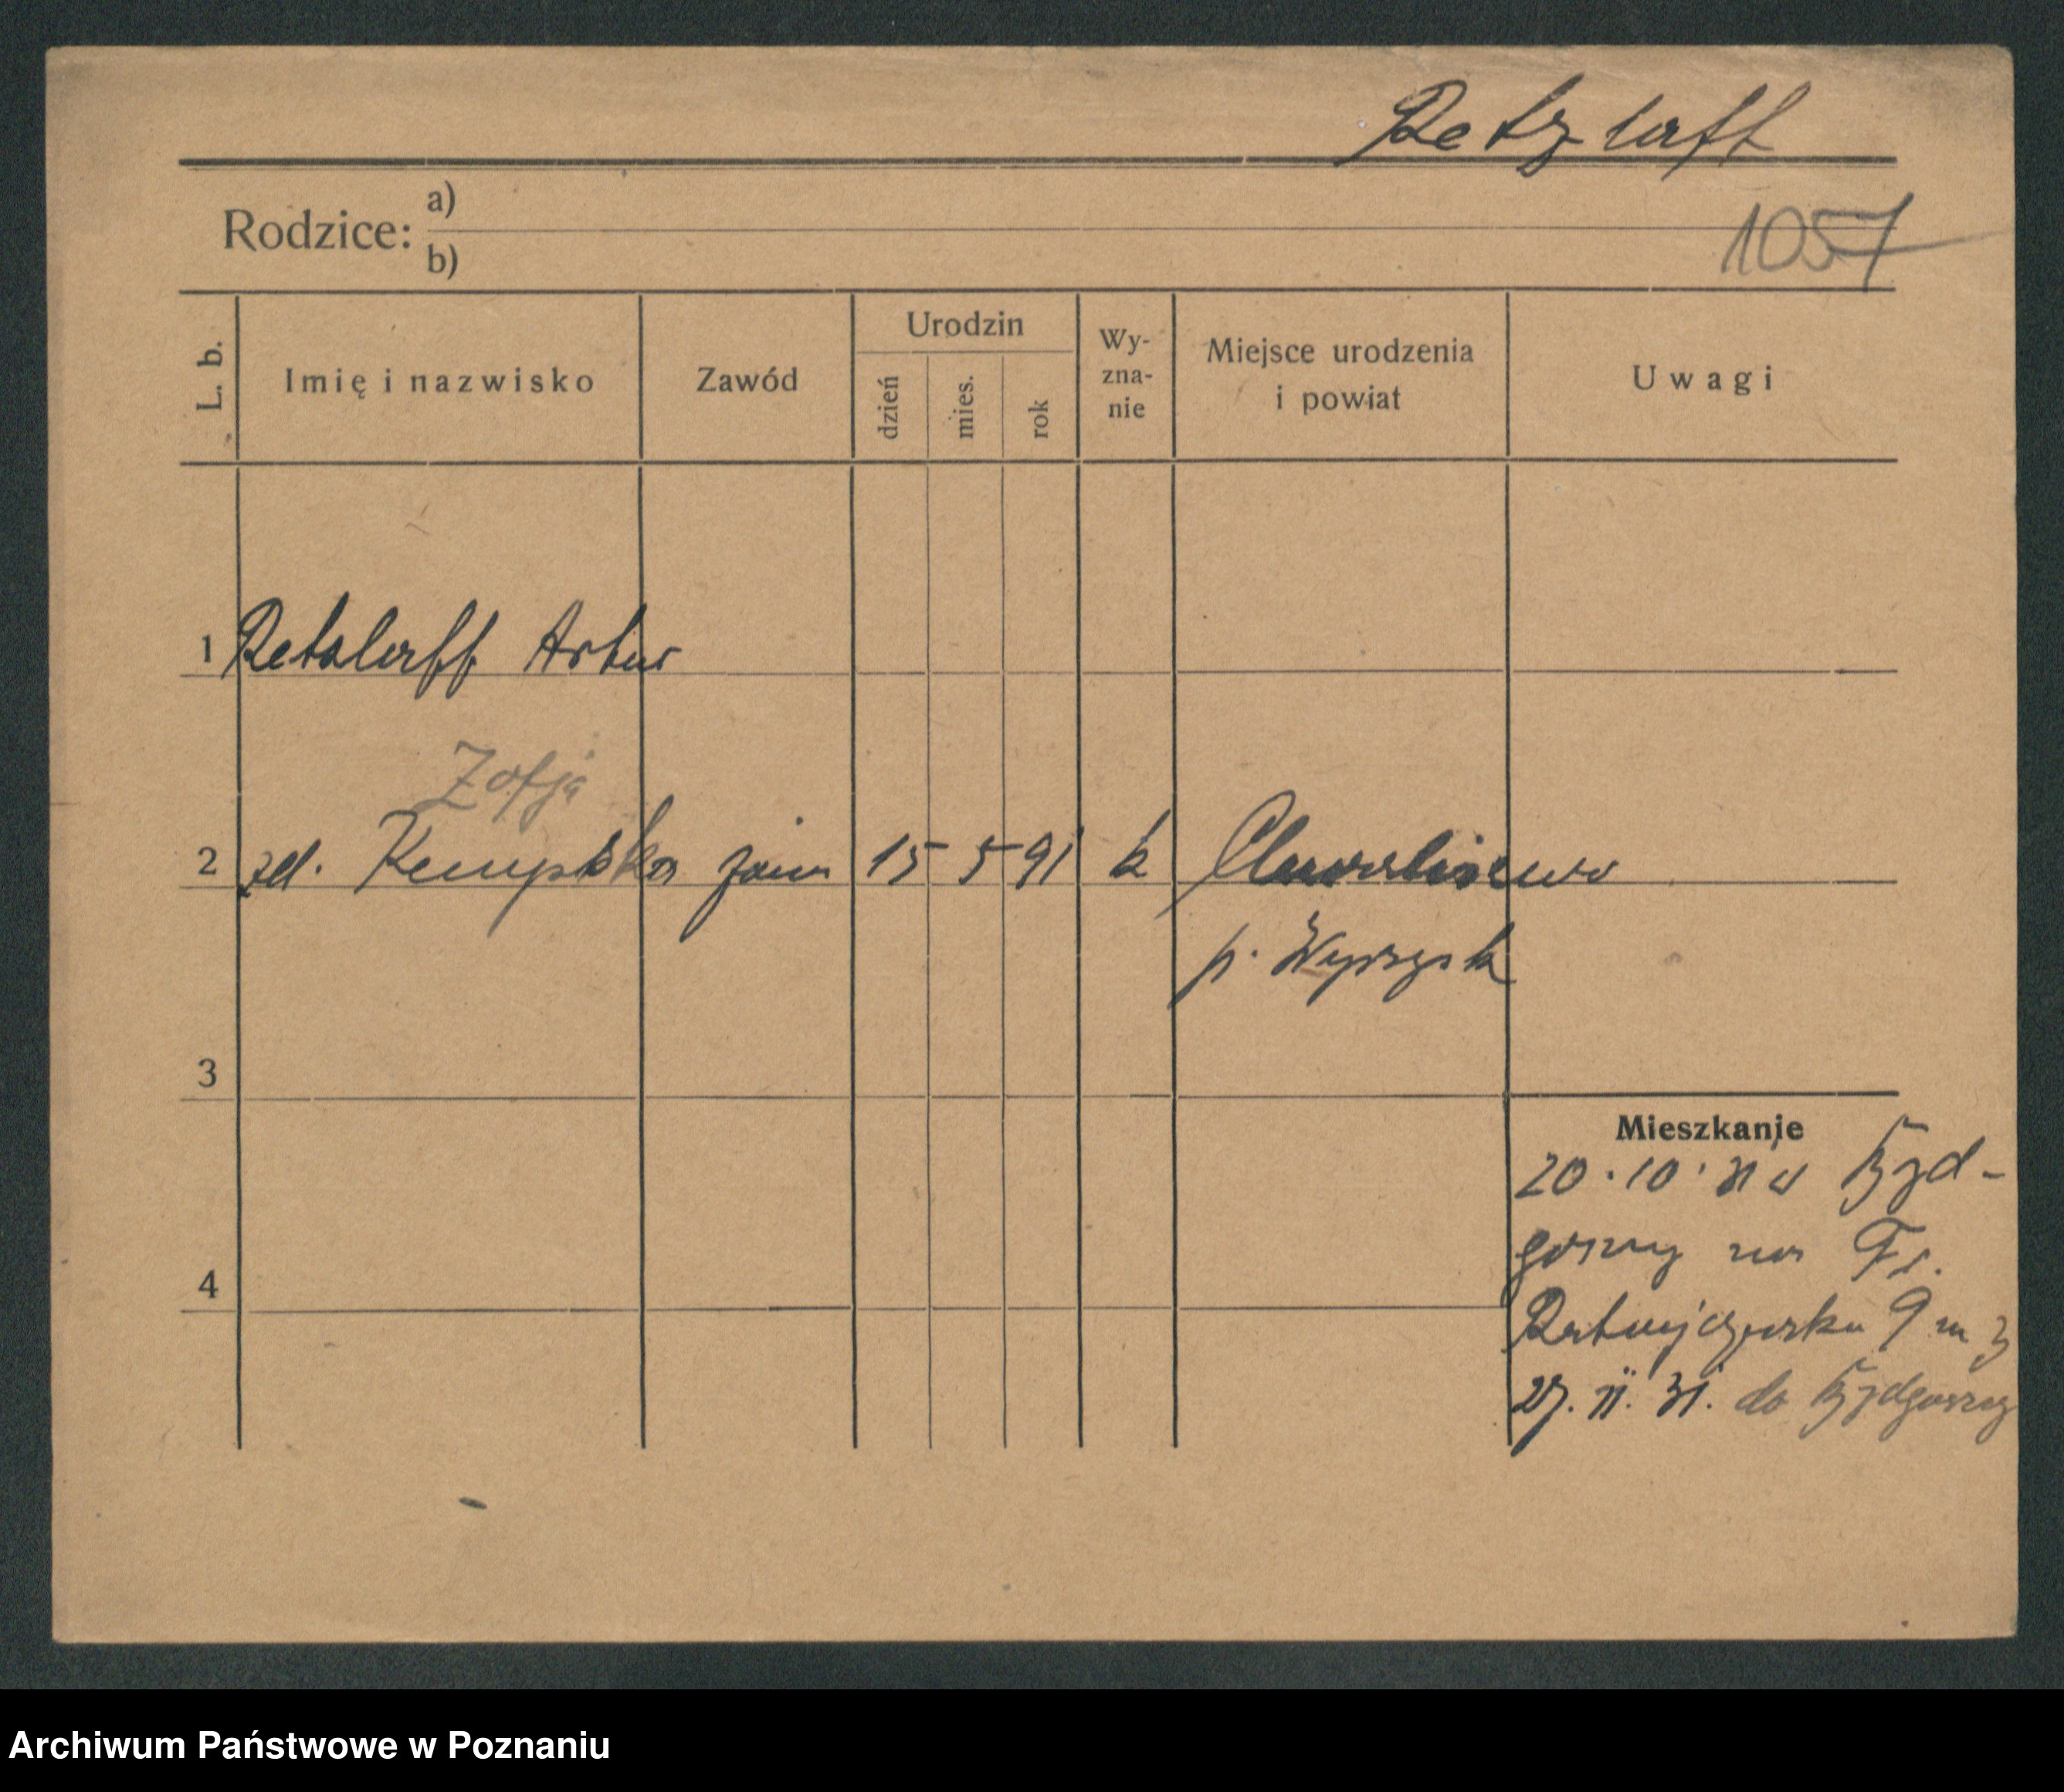 Retzlaff
Rodzice:
a)
b)
1057
L. b.
Imię i nazwisko
Zawód
Urodzin
dzień
mies.
rok
Wy-
zna-
nie
Miejsce urodzenia
i powiat
Uwagi
1 Retzlaff Artur
Zofja
2 zd. Kempska 15 5 91 k
p. Wyrzysk
3
4
Mieszkanie
20.10.31 w Bydg-
goszczy na Fr.
Ratajczaka 9 m 3
27. 11. 31. do Bydgoszczy
Archiwum Państwowe w Poznaniu